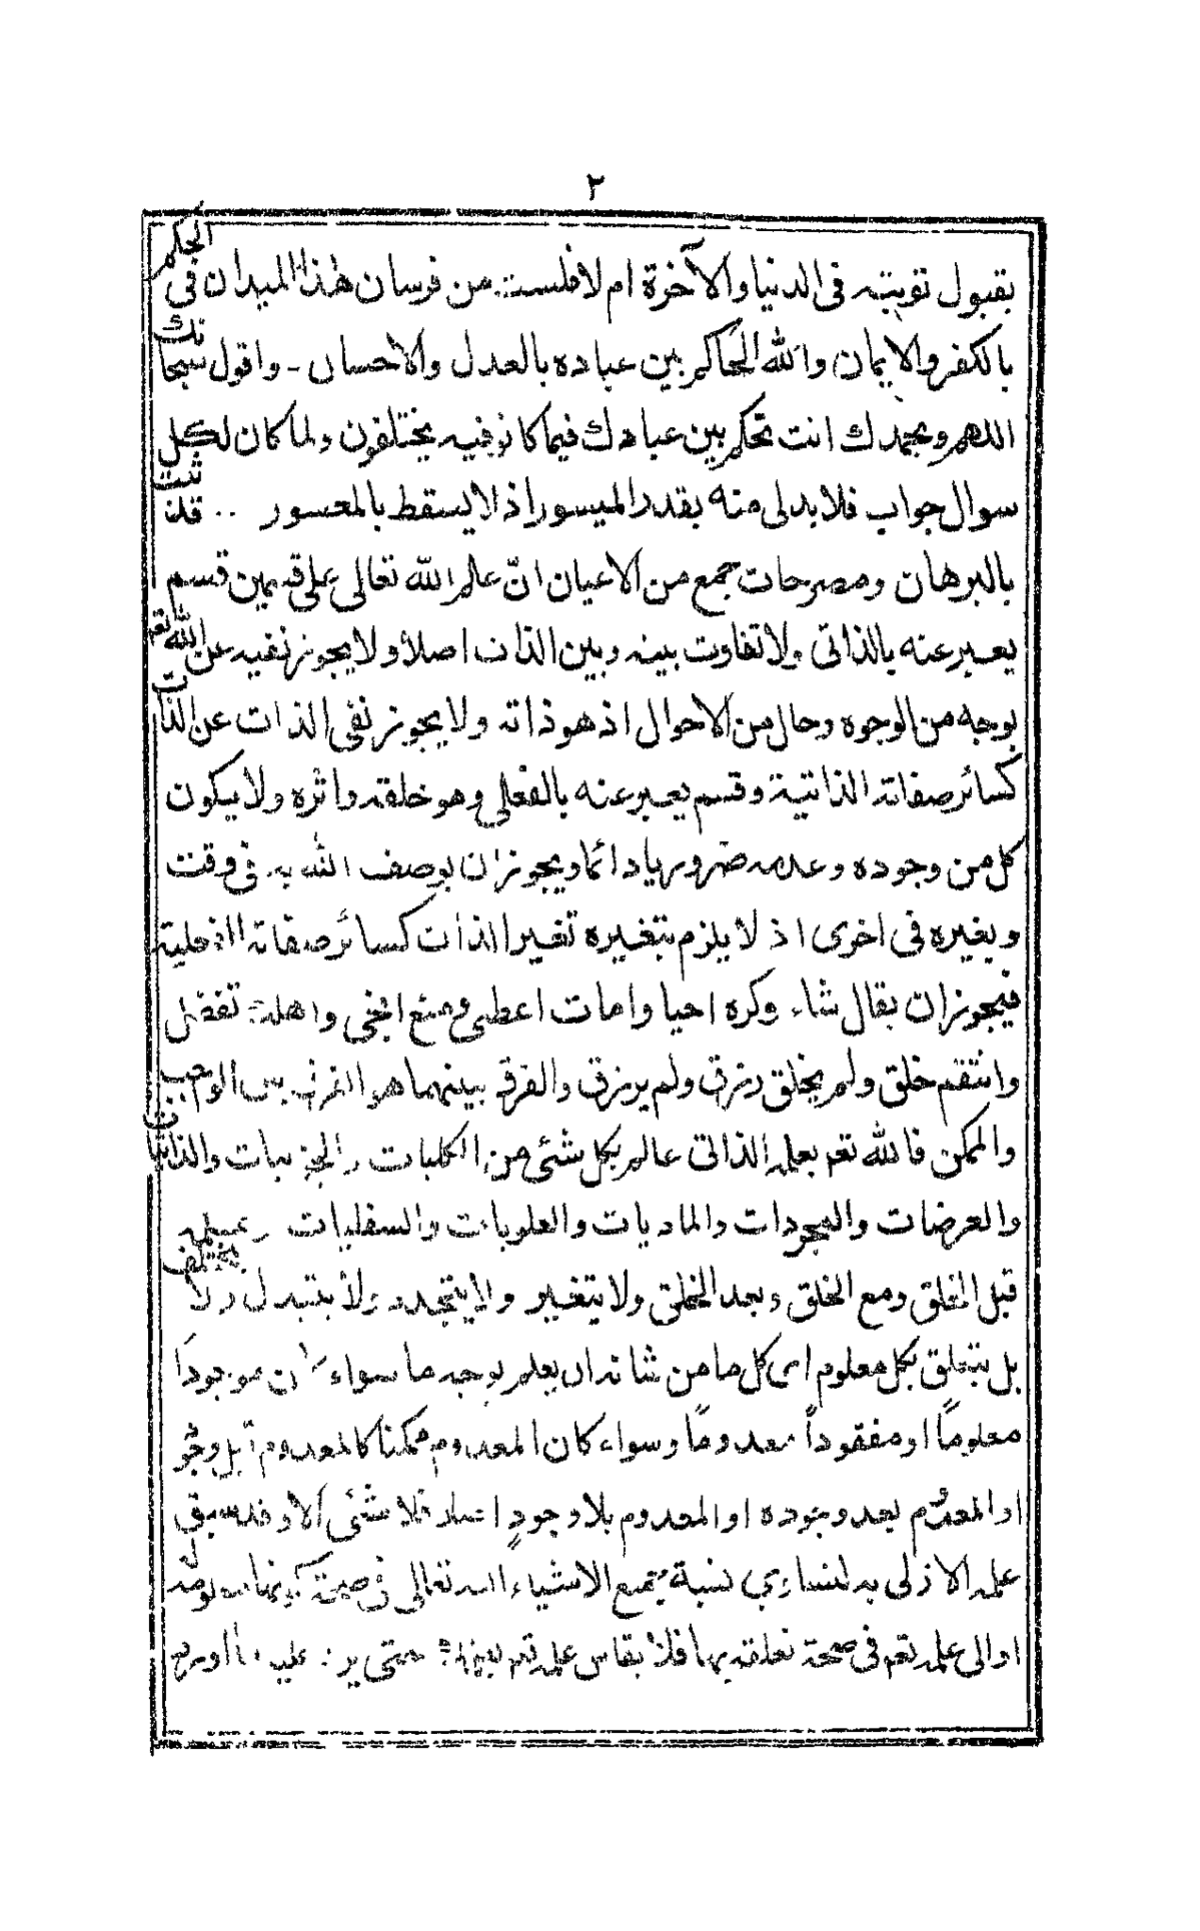 ٢
بقبول توبته فی الدنیا والآخرة ام لا فلست من فرسان هذا المیدان فی الحکم
بالکفر والایمان والله الحاکم بین عباده بالعدل والاحسان - واقول سبحانک
اللهم وبحمدک انت تحکم بین عبادک فیما کانو فیه یختلفون ولما کان لکل
سوال جواب فلابد لی منه بقدر المیسور اذ لا یسقط بالمعسور .. قد ثبت
بالبرهان ومصرحات جمع من الاعیان انّ علم الله تعالی علی قسمین قسم
یعبر عنه بالذاتی ولا تفاوت بینه وبین الذات اصلاً ولا یجوز نفیه عن الله تعم
بوجه من الوجوه وحال من الاحوال اذ هو ذاته ولا یجوز نفی الذات عن الذات
کسائر صفاته الذاتیة وقسم یعبر عنه بالفعلی وهو خلقه واثره ولا یکون
کل من وجوده وعدمه ضروریا دائما ویجوز ان یوصف الله به فی وقت
وبغیره فی اخری اذ لا یلزم بتغیره تغیر الذات کسائر صفاته الفعلیة
فیجوز ان یقال شاء وکره احیا وامات اعطی ومنع انجی واهلک تفضل
وانتقم خلق ولم یخلق رزق ولم یرزق والفرق بینهما هو الفرق بین الواجب
والممکن فالله تعم بعلمه الذاتی عالم بکل شئی من الکلیات والجزییات والذاتیات
والعرضات والمجردات والمادیات والعلویات والسفلیات
قبل الخلق ومع الخلق وبعد الخلق ولا یتغیر ولا یتجدد ولا یتبدل ولا یختلف
بل یتعلق بکل معلوم ای کل ما من شانه ان یعلم بوجه ما سواء کان موجوداً
معلوماً او مفقوداً معدوماً وسواء کان المعدوم ممکنا کالمعدوم قبل وجوده
او المعدوم بعد وجوده او المعدوم بلا وجودٍ فلا شئی الا وقد سبق
علمه الازلی به لتساوی نسبة جمیع الاشیاء الیه تعالی فی صحة
او الی علمه تعم فی صحة تعلقه بها فلا یقاس علمه تعم